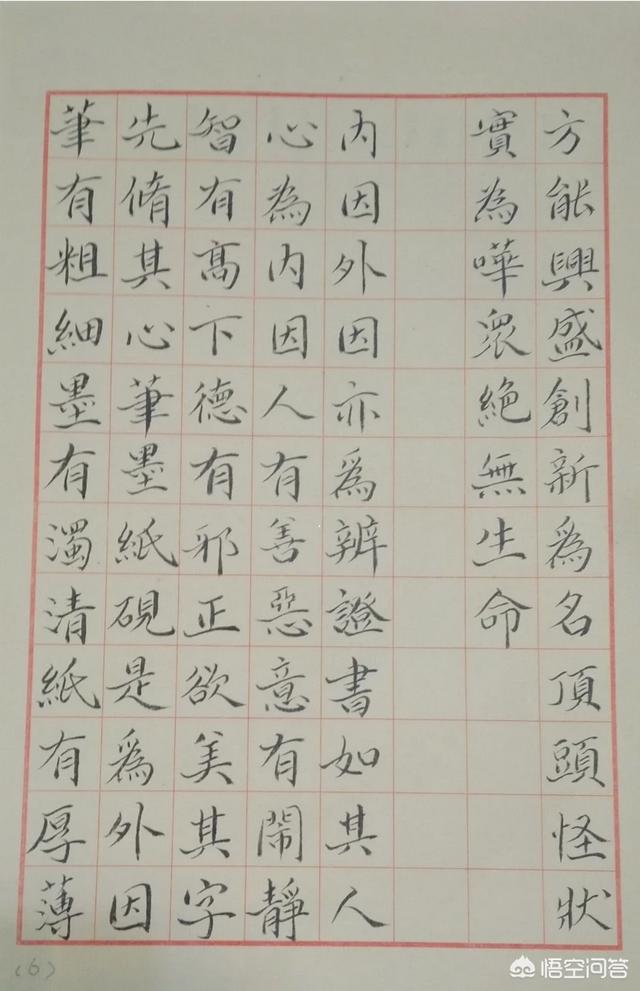 方能興盛創新為名頂頭怪狀
實為嘩眾絕無生命
內因外因亦為辨證書如其人
心為內因人有善惡意有鬧靜
智有高下德有邪正欲美其字
先脩其心筆墨紙硯是為外因
筆有粗細墨有濁清紙有厚薄
(6)
悟空问答